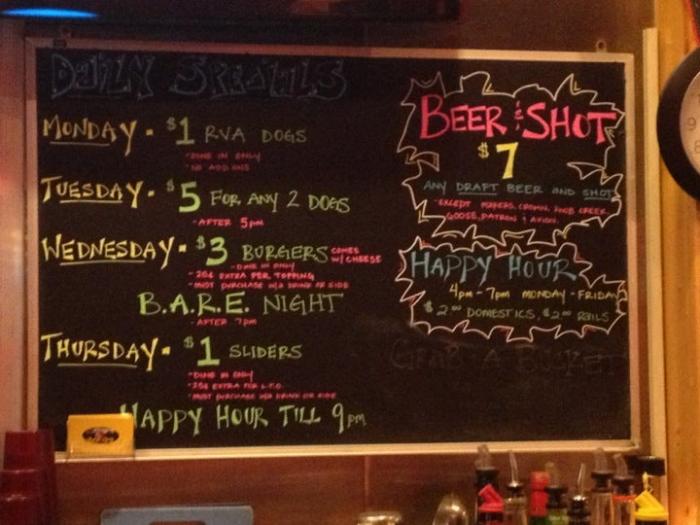 DAILY SPECIALS
MONDAY - $1 RVA DOGS
- DINE IN ONLY
- NO ADD ONS
TUESDAY - $5 FOR ANY 2 DOGS
- AFTER 5pm
WEDNESDAY - $3 BURGERS COMES W/ CHEESE
- DINE IN ONLY
- 25¢ EXTRA PER TOPPING
- MUST PURCHASE W/A DRINK OR SIDE
B.A.R.E. NIGHT
- AFTER 7pm
THURSDAY - $1 SLIDERS
- DINE IN ONLY
- 25¢ EXTRA FOR L.T.O.
- MUST PURCHASE W/A DRINK OR SIDE
HAPPY HOUR TILL 9pm
BEER & SHOT
$7
ANY DRAFT BEER AND SHOT
*EXCEPT MAKERS, CROWN, KNOB CREEK,
GOOSE, PATRON & AVION.
HAPPY HOUR
4pm - 7pm MONDAY - FRIDAY
$2.00 DOMESTICS, $2.00 RAILS
GRAB A BUCKET